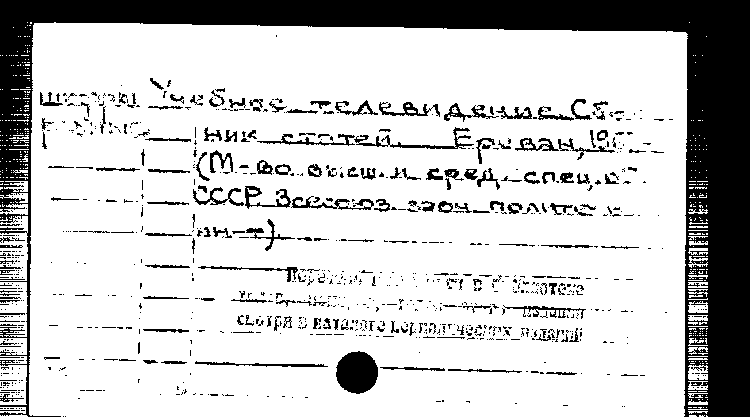 шифры Учебное телевидение. Сб.
разные ник статей. Ереван, 196
(М-во высш. и сред. спец. о
СССР. Всесоюз. заоч. политех
ин-т).
в библиотеке
издания
смотри в каталоге периодических изданий